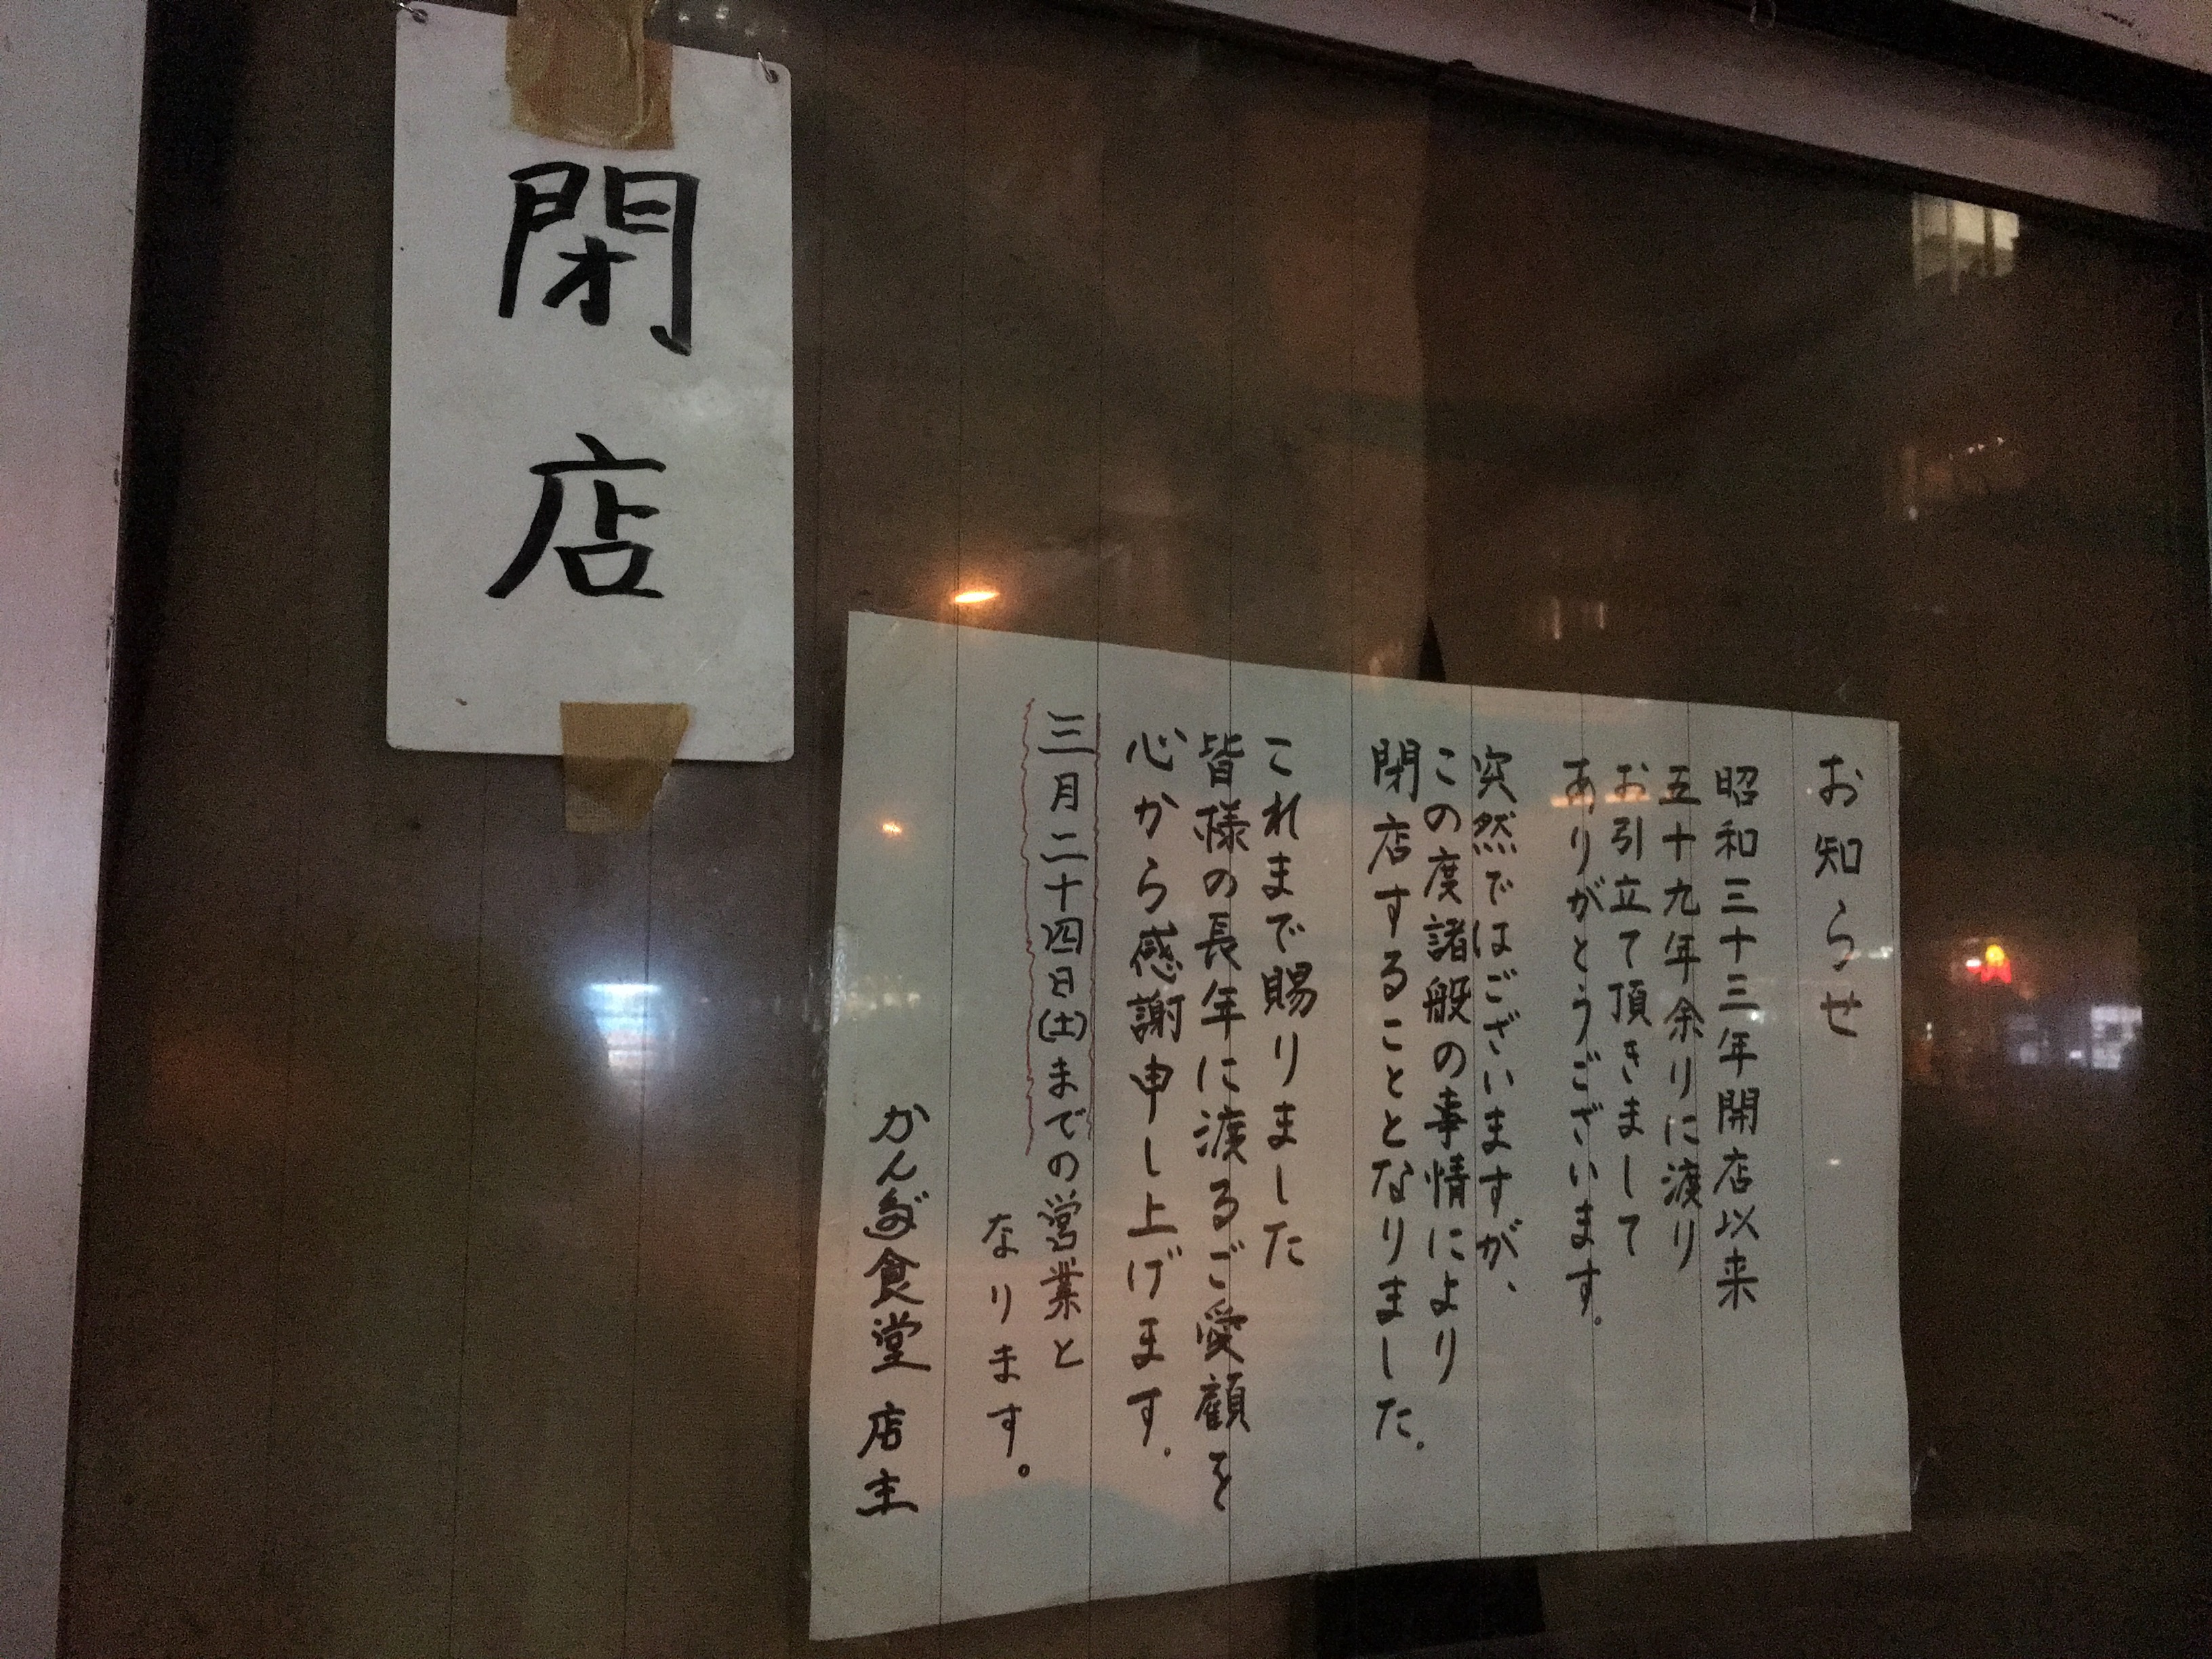 閉店
お知らせ
昭和三十三年開店以来
五十九年余りに渡り
お引立て頂きまして
ありがとうございます。
突然ではございますが、
この度諸般の事情により
閉店することとなりました。
これまで賜りました
皆様の長年に渡るご愛顧を
心から感謝申し上げます。
三月二十四日(土)までの営業と
なります。
食堂 店主